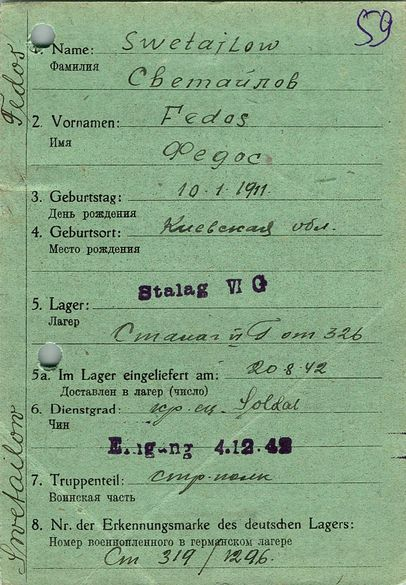 59
1. Name: Swetajlow
Фамилия
Светайлов
2. Vornamen: Fedos
Имя
Федос
3. Geburtstag: 10.1.1911.
День рождения
4. Geburtsort: Киевская обл.
Место рождения
Stalag VI G
5. Lager:
Лагер
Сталаг VI Г от 326
5a. Im Lager eingeliefert am: 20 8.42
Доставлен в лагер (число)
6. Dienstgrad: кр-ец. Soldat
Чин
Eingang 4.12.42
7. Truppenteil: стр. полк
Воинская часть
8. Nr. der Erkennungsmarke des deutschen Lagers:
Номер военнопленного в германском лагере
Ст 319 / 1296.
Swetailow Fedos